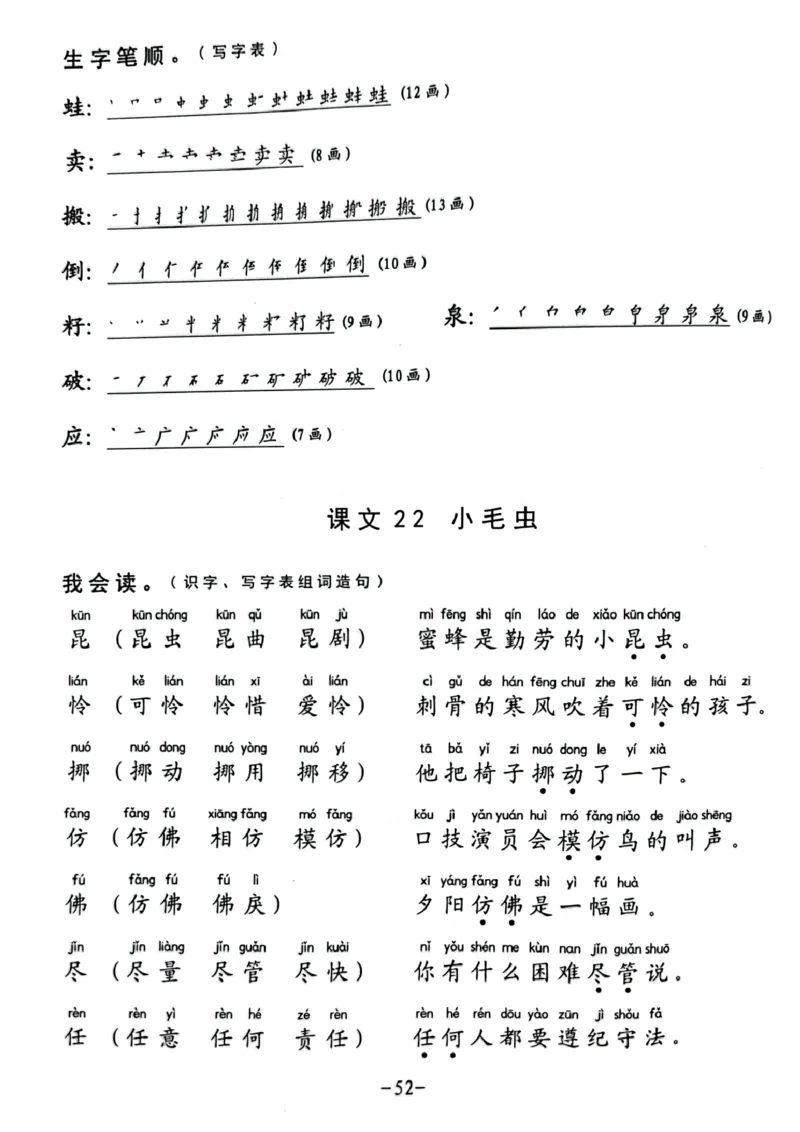 生字笔顺。（写字表）
蛙：丶 口 口 中 虫 虫 蛙 (12画)
卖： (8画)
搬：搬 (13画)
倒：倒 (10画)
籽：籽 (9画) 泉：泉 (9画)
破：破 (10画)
应：应 (7画)
课文22 小毛虫
我会读。（识字、写字表组词造句）
kūn kūn chóng kūn qǔ kūn jù mì fēng shì qín láo de xiǎo kūn chóng
昆 （昆虫 昆曲 昆剧） 蜜蜂是勤劳的小昆虫。
lián kě lián lián xī ài lián cì gǔ de hán fēng chuī zhe kě lián de hái zi
怜 （可怜 怜惜 爱怜） 刺骨的寒风吹着可怜的孩子。
nuó nuó dong nuó yòng nuó yí tā bǎ yǐ zi nuó dong le yí xià
挪 （挪动 挪用 挪移） 他把椅子挪动了一下。
fǎng fǎng fú xiāng fǎng mó fǎng kǒu jì yǎn yuán huì mó fǎng niǎo de jiào shēng
仿 （仿佛 相仿 模仿） 口技演员会模仿鸟的叫声。
fú fǎng fú fú lì xī yáng fǎng fú shì yì fú huà
佛 （仿佛 佛戾） 夕阳仿佛是一幅画。
jǐn jǐn liàng jǐn guǎn jǐn kuài nǐ yǒu shén me kùn nan jǐn guǎn shuō
尽 （尽量 尽管 尽快） 你有什么困难尽管说。
rèn rèn yì rèn hé zé rèn rèn hé rén dōu yào zūn jì shǒu fǎ
任 （任意 任何 责任） 任何人都要遵纪守法。
-52-